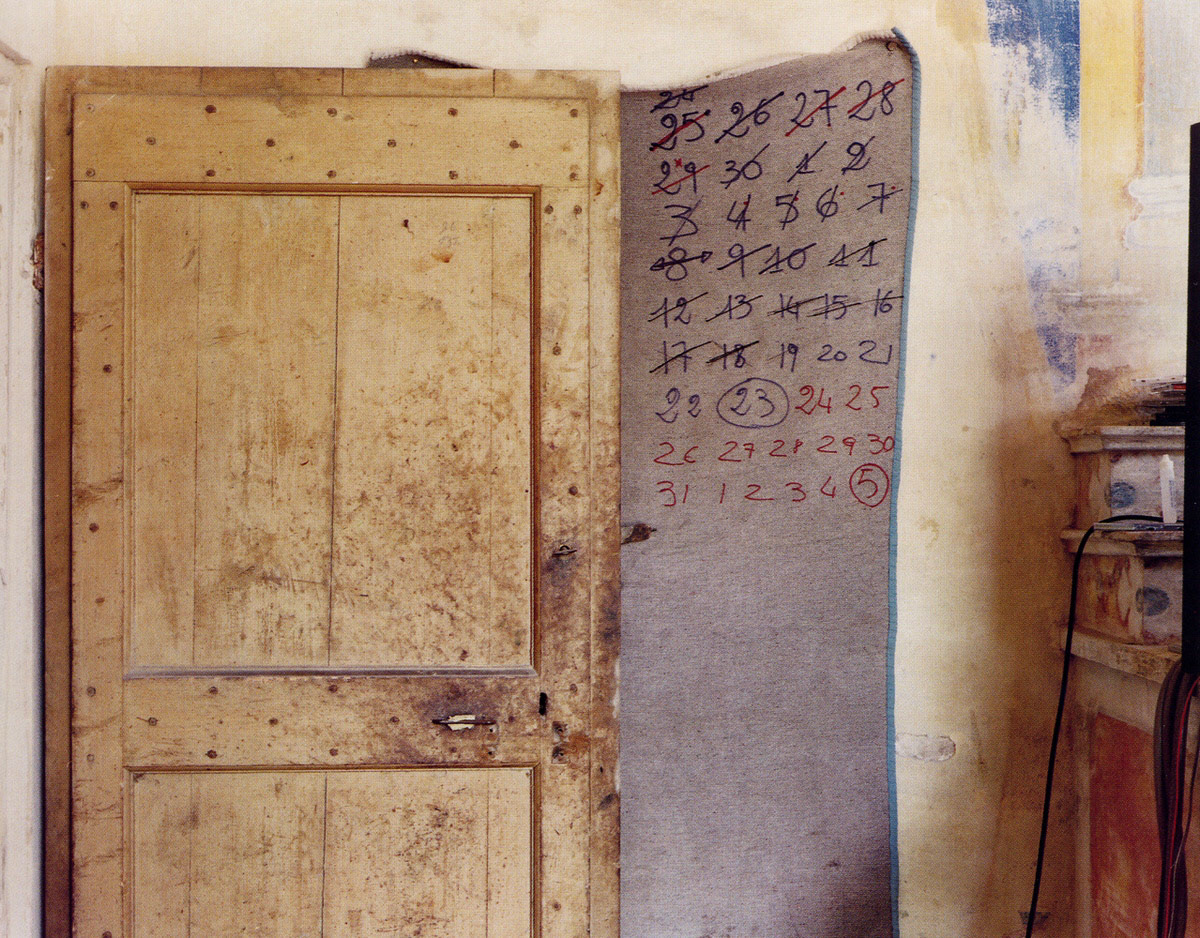 24
25 26 27 28
29 30 1 2
3 4 5 6 7
8 9 10 11
12 13 14 15 16
17 18 19 20 21
22 23 24 25
26 27 28 29 30
31 1 2 3 4 5